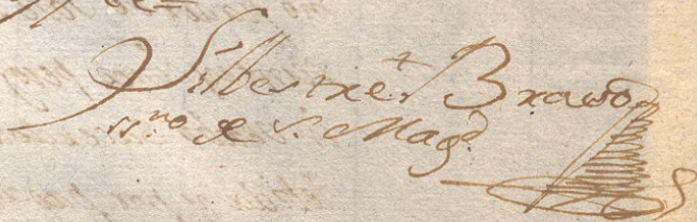 Silbestre Bravo
ssno de S. Magd